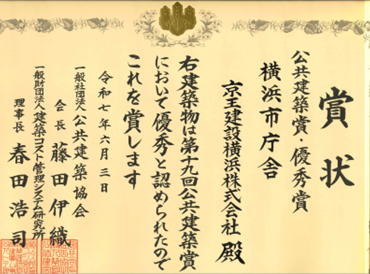 賞状
公共建築賞・優秀賞
横浜市庁舎
京王建設横浜株式会社 殿
右建築物は第十九回公共建築賞
において優秀と認められたので
これを賞します
令和七年六月三日
一般社団法人公共建築協会
会長 藤田伊織
一般財団法人建築コスト管理システム研究所
理事長 春田浩司